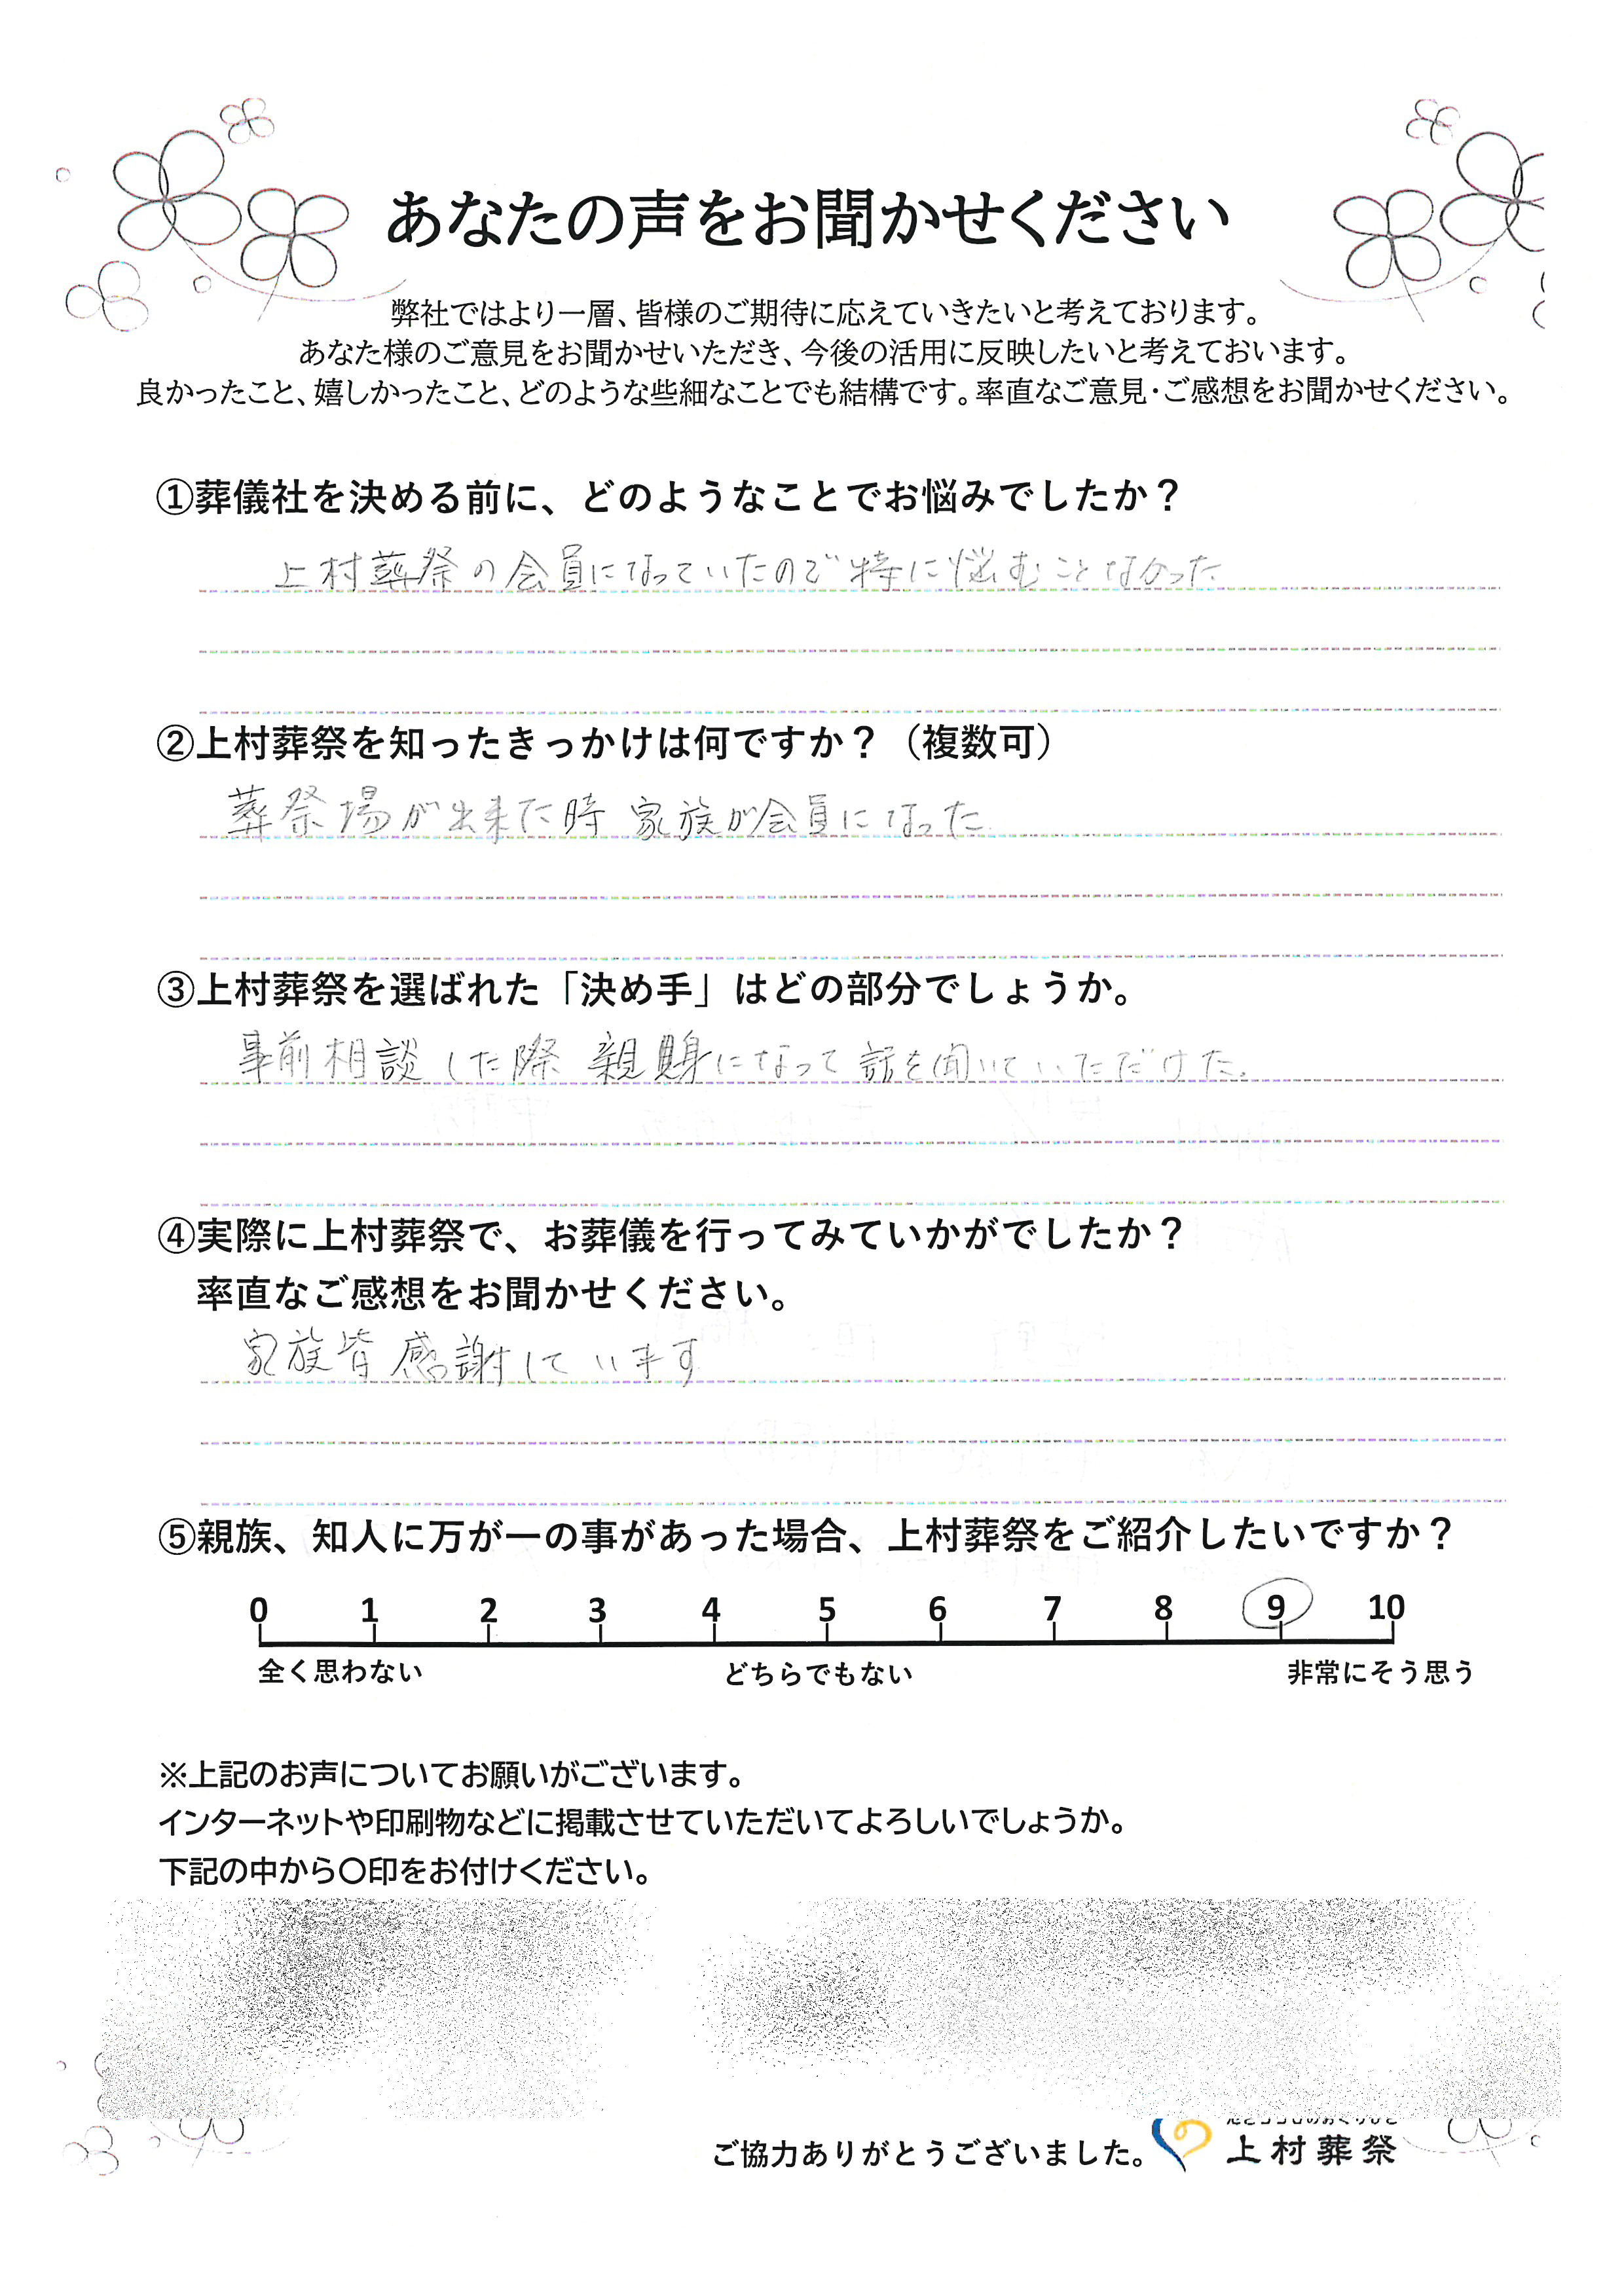 あなたの声をお聞かせください
弊社ではより一層、皆様のご期待に応えていきたいと考えております。
あなた様のご意見をお聞かせいただき、今後の活用に反映したいと考えておいます。
良かったこと、嬉しかったこと、どのような些細なことでも結構です。率直なご意見・ご感想をお聞かせください。
①葬儀社を決める前に、どのようなことでお悩みでしたか？
上村葬祭の会員になっていたので特に悩むことなかった
②上村葬祭を知ったきっかけは何ですか？（複数可）
葬祭場が出来た時 家族が会員になった
③上村葬祭を選ばれた「決め手」はどの部分でしょうか。
事前相談した際 親身になって 話を聞いていただけた。
④実際に上村葬祭で、お葬儀を行ってみていかがでしたか？
率直なご感想をお聞かせください。
家族皆感謝しています
⑤親族、知人に万が一の事があった場合、上村葬祭をご紹介したいですか？
0 1 2 3 4 5 6 7 8 9 10
全く思わない どちらでもない 非常にそう思う
※上記のお声についてお願いがございます。
インターネットや印刷物などに掲載させていただいてよろしいでしょうか。
下記の中から〇印をお付けください。
ご協力ありがとうございました。
上村葬祭